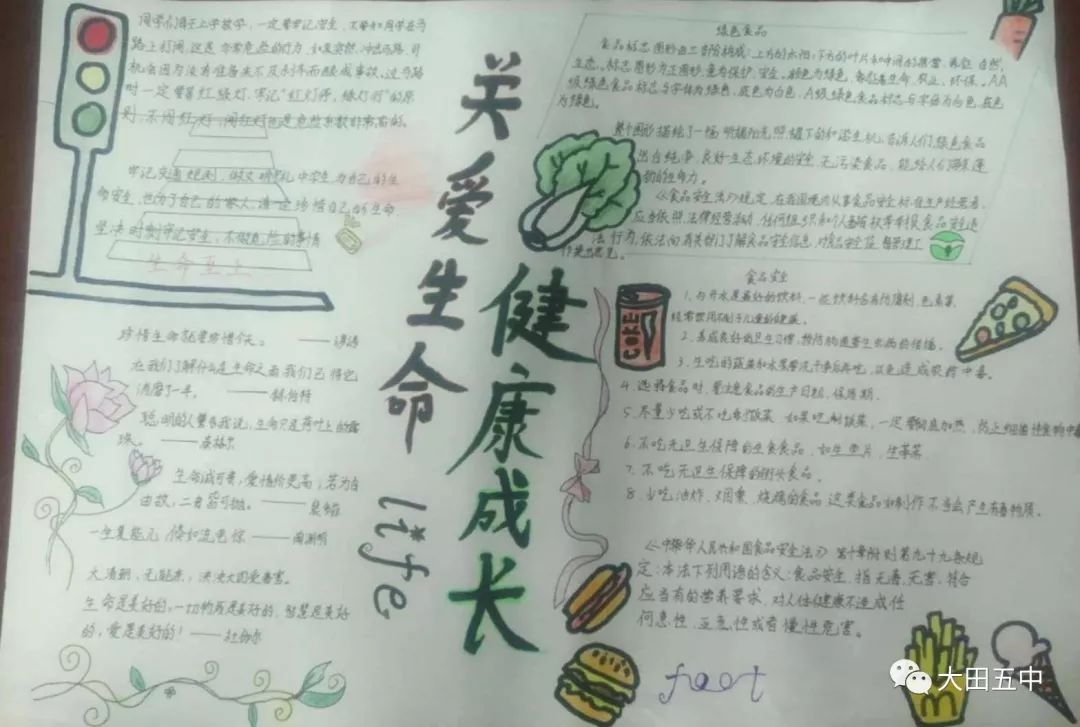 同学们每天上学放学，一定要牢记安全，不要和同学在马
路上打闹，这是非常危险的行为，如果突然冲出马路，司
机会因为没有准备来不及刹车而酿成事故，过马路
时一定要看红绿灯，牢记"红灯停，绿灯行"的原
则，不闯红灯，闯红灯也是危险系数非常高的。
牢记交通规则，做文明守礼中学生，为自己的生
命安全，也为了自己的家人，请一定珍惜自己的生命
坚决时刻牢记安全，不做危险的事情
生命至上
珍惜生命就要珍惜今天。——谚语
在我们了解什么是生命之前，我们已将它
消磨了一半。——赫伯特
聪明的人警告我说，生命只是荷叶上的露
珠。——泰格尔
生命诚可贵，爱情价更高；若为自
由故，二者皆可抛。——裴多菲
一生复能几，倏如流电惊——陶渊明
生命是美好的，一切物质是美好的，智慧是美好
的，爱是美好的！——杜伽尔
关爱生命
life
健康成长
绿色食品
食品标志图形由三部分构成：上方的太阳，下方的叶片和中间的蓓蕾，象征自然
生态。标志图形为正圆形，意为保护、安全。颜色为绿色，象征着生命、农业、环保。AA
级绿色食品标志与字体为绿色，底色为白色，A级绿色食品标志与字体为白色，底色
为绿色。
整个图形描绘了一幅明媚阳光照耀下的和谐生机，告诉人们，绿色食品
出自纯净、良好生态环境的安全、无污染食品，能给人们带来蓬
勃的生命力。
《食品安全法》规定，在我国境内从事食品安全标
应当依照法律经营活动，任何组织和个人都有权举报食品安全违
法行为，依法向有关部门了解食品安全信息，对食品安全监督管理工
作提出意见。
食品安全
1、白开水是最好的饮料，一些饮料含有防腐剂、色素等，
经常饮用不利于儿童的健康。
2、养成良好的卫生习惯，预防肠道寄生虫病的传播。
3、生吃的蔬菜和水果要洗干净后再吃，以免造成农药中毒。
4、选择食品时，要注意食品的生产日期、保质期。
5、尽量少吃或不吃剩饭菜，如果吃剩饭菜，一定要彻底加热，防止细菌性食物中毒
6、不吃无卫生保障的生食食品，如生鱼片、生荸荠。
7、不吃无卫生保障的街头食品。
8、少吃油炸、烟熏、烧烤的食品，这类食品如制作不当会产生有毒物质。
《中华人民共和国食品安全法》第十章附则第九十九条规
定：本法下列用语的含义：食品安全，指无毒、无害，符合
应当有的营养要求，对人体健康不造成任
何急性、亚急性或者慢性危害。
COKE
foot
大田五中